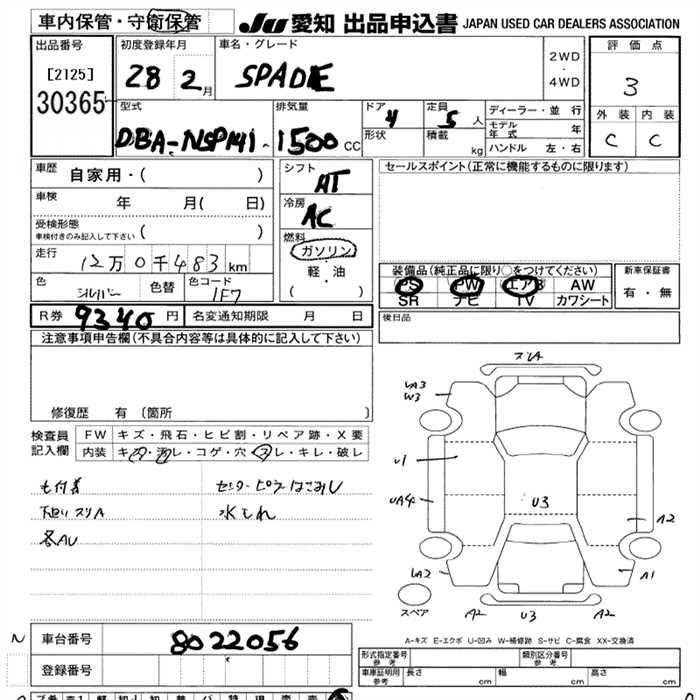 車内保管・守衛保管
JU 愛知 出品申込書 JAPAN USED CAR DEALERS ASSOCIATION
出品番号
[2125]
30365
初度登録年月
28 2月
車名・グレード
SPADE
2WD
・
4WD
評価点
3
外装 内装
C C
型式
DBA-NSP141
排気量
1500 CC
ドア 4
形状
定員 5 人
積載 kg
ディーラー・並行
モデル年式 年
ハンドル 左・右
車歴
自家用・( )
車検
年 月( 日)
受検形態
車検付きのみ記入して下さい ( )
走行
12万0千483km
色
シルバー
色替
色コード
1F7
シフト
AT
冷房
AC
燃料
ガソリン
軽・油
( )
セールスポイント(正常に機能するものに限ります)
装備品(純正品に限り○をつけてください)
PS PW エアB AW
SR ナビ TV カワシート
新車保証書
有・無
R券 9340 円
名変通知期限 月 日
後日品
注意事項申告欄(不具合内容等は具体的に記入して下さい)
修復歴 有 (箇所 )
検査員記入欄
FW キズ・飛石・ヒビ割・リペア跡・X要
内装 キズ・汚レ・コゲ・穴・スレ・キレ・破レ
センターピラーはさみU
下廻りスリA
水もれ
各AU
スリA
UA3
W3
U1
UA4
U3
A2
UA2
A1
スペア
A2
U3
A2
A-キズ E-エクボ U-凹み W-補修跡 S-サビ C-腐食 XX-交換済
車台番号
8022056
登録番号
型式指定番号
参考
類別区分番号
参考
車証明用
参考
長さ cm
幅 cm
高さ cm